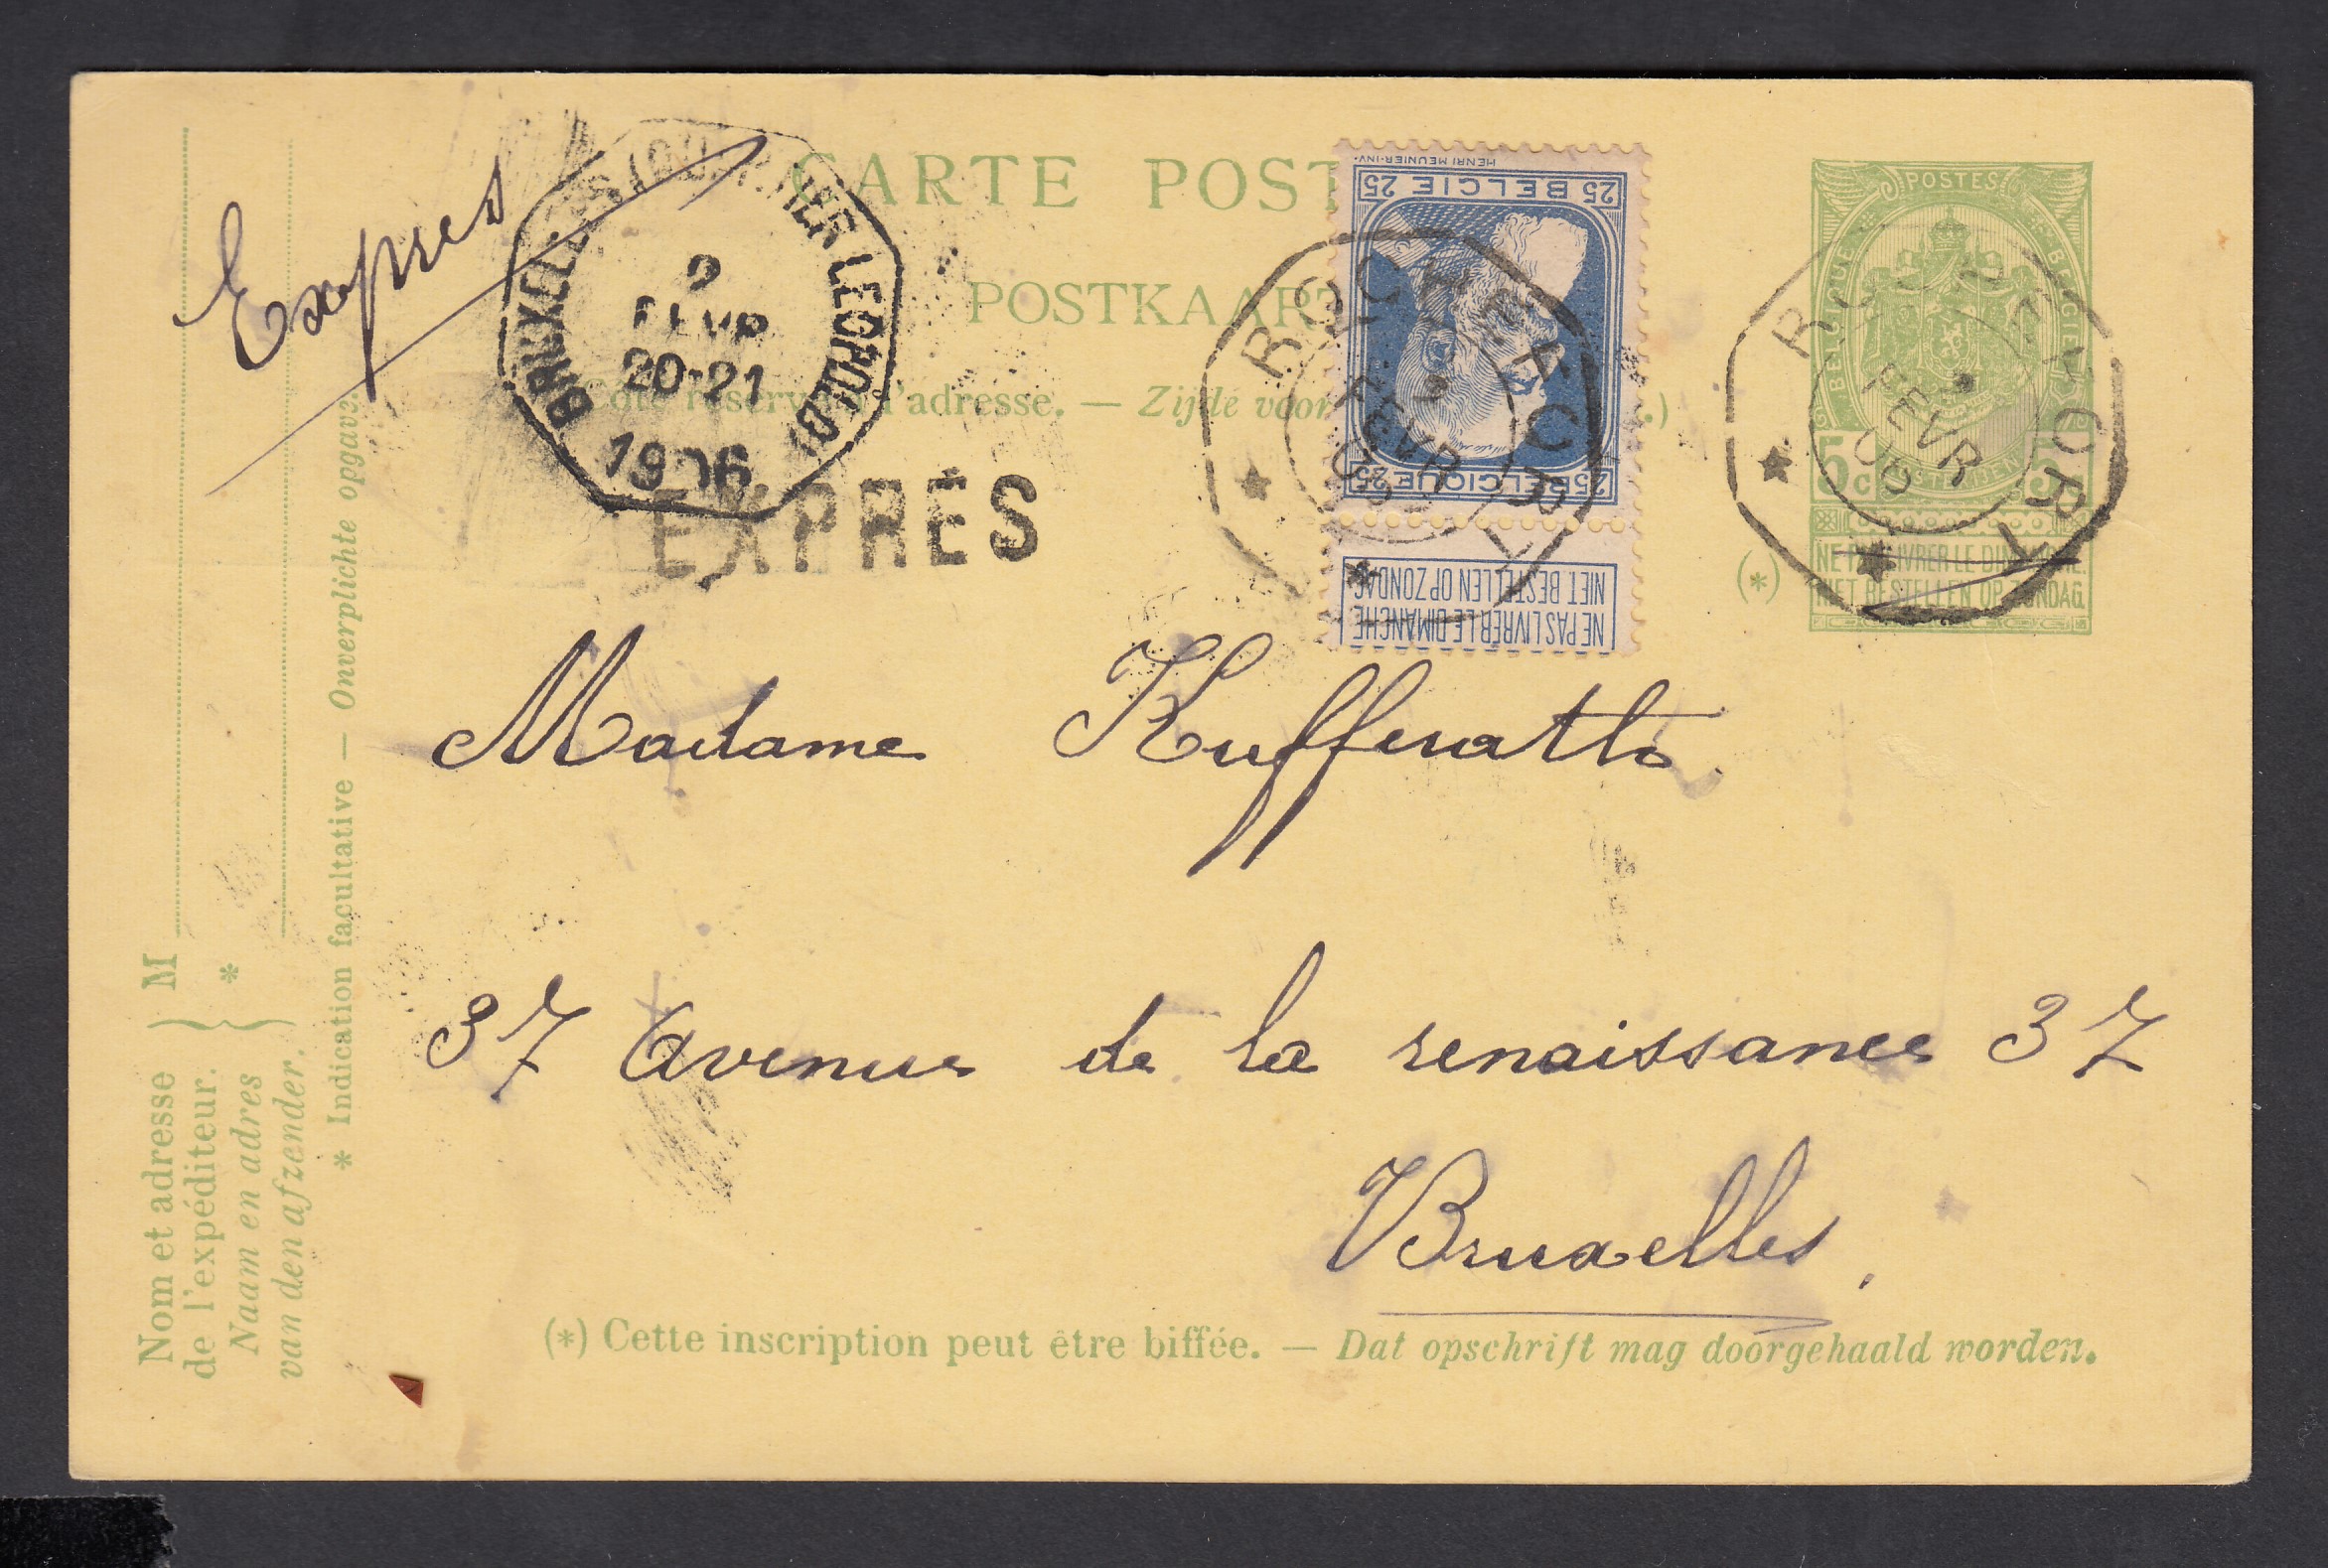 CARTE POST
POSTKAAR
Côté réservé à l'adresse. — Zijde voor
Exprès
BRUXELLES (QUARTIER LEOPOLD)
9
FEVR
20-21
1906
EXPRÈS
HENRI MEUNIER·INV.
25 BELGIE 25
25 BELGIQUE 25
NIET BESTELLEN OP ZONDAG
NE PAS LIVRER LE DIMANCHE
FEVR
06
POSTES
BELGIQUE
BELGIË
5c
POSTERIJEN
5c
(*)
NE PAS LIVRER LE DIMANCHE.
NIET BESTELLEN OP ZONDAG.
FEVR
06
Madame Kufferath.
37 Avenue de la renaissance 37
Bruxelles,
(*) Cette inscription peut être biffée. — Dat opschrift mag doorgehaald worden.
Nom et adresse
de l'expéditeur.
M
Naam en adres
van den afzender.
*
* Indication facultative — Onverplichte opgave.